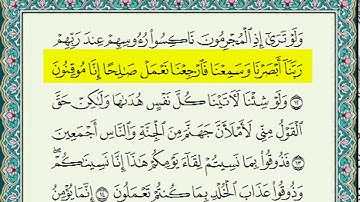 وَلَوْ تَرَىٰٓ إِذِ ٱلْمُجْرِمُونَ نَاكِسُوا۟ رُءُوسِهِمْ عِندَ رَبِّهِمْ
رَبَّنَآ أَبْصَرْنَا وَسَمِعْنَا فَٱرْجِعْنَا نَعْمَلْ صَٰلِحًا إِنَّا مُوقِنُونَ
١٢ وَلَوْ شِئْنَا لَءَاتَيْنَا كُلَّ نَفْسٍ هُدَىٰهَا وَلَٰكِنْ حَقَّ
ٱلْقَوْلُ مِنِّى لَأَمْلَأَنَّ جَهَنَّمَ مِنَ ٱلْجِنَّةِ وَٱلنَّاسِ أَجْمَعِينَ
١٣ فَذُوقُوا۟ بِمَا نَسِيتُمْ لِقَآءَ يَوْمِكُمْ هَٰذَآ إِنَّا نَسِينَٰكُمْ ۖ
وَذُوقُوا۟ عَذَابَ ٱلْخُلْدِ بِمَا كُنتُمْ تَعْمَلُونَ ١٤ إِنَّمَا يُؤْمِنُ